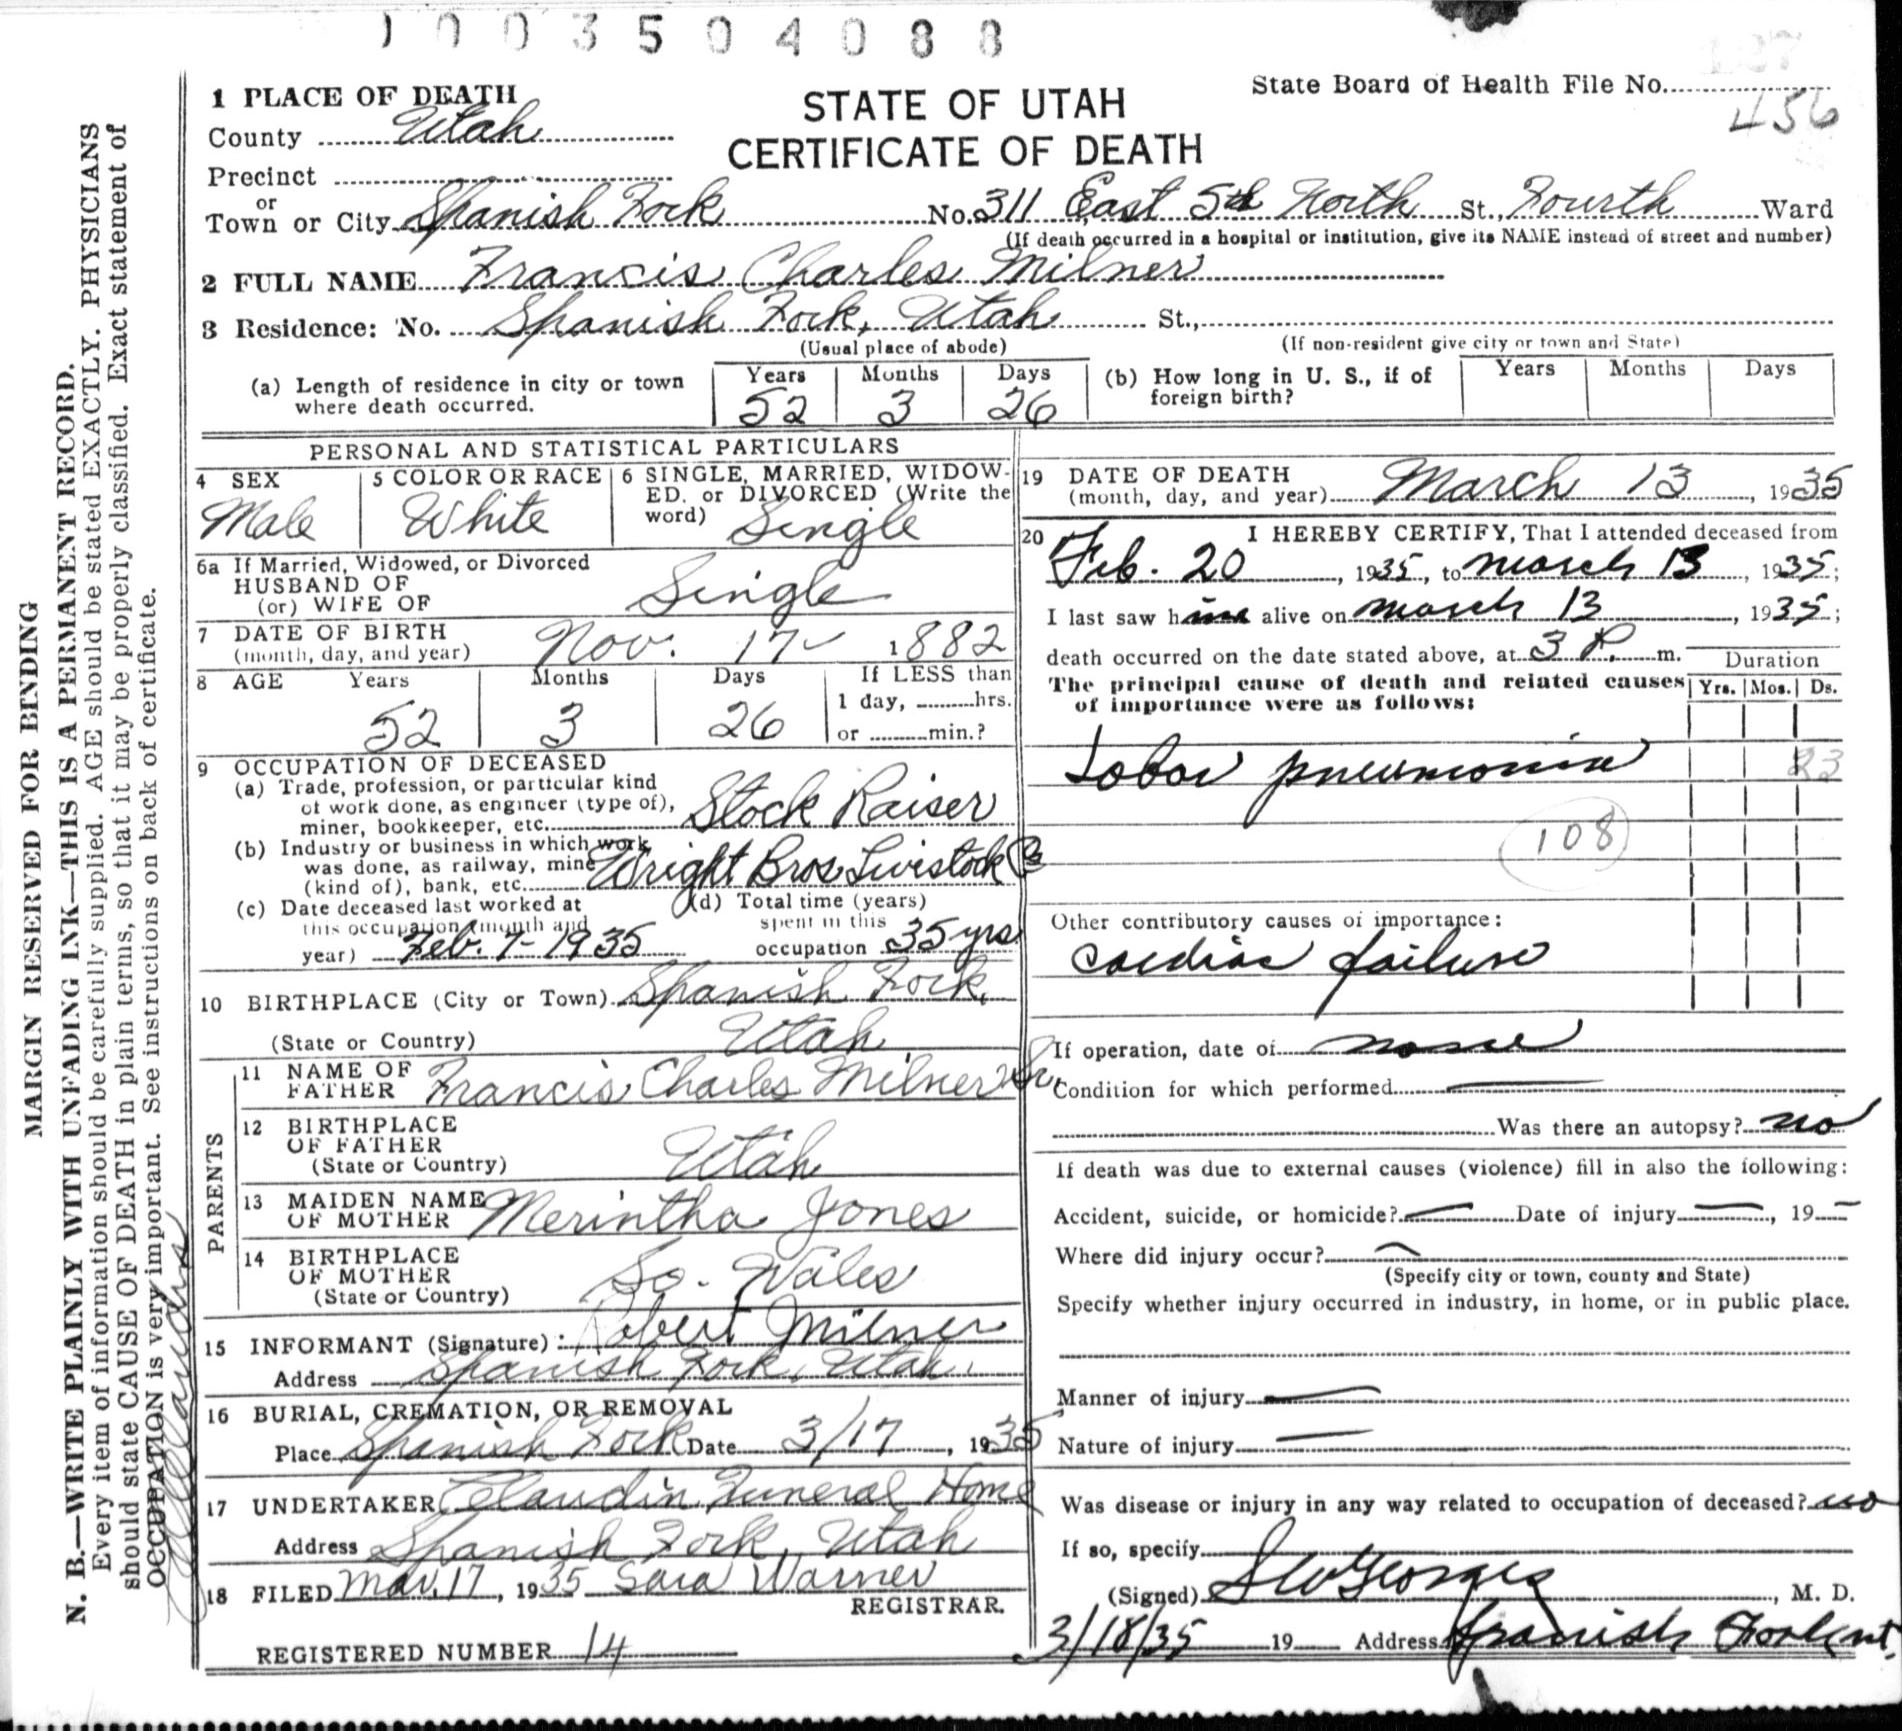 1003504088
1 PLACE OF DEATH
STATE OF UTAH
CERTIFICATE OF DEATH
State Board of Health File No.
456
County Utah
Precinct
or
Town or City Spanish Fork No. 311 East 5th North St., Fourth Ward
(If death occurred in a hospital or institution, give its NAME instead of street and number)
2 FULL NAME Francis Charles Milner
3 Residence: No. Spanish Fork, Utah St.,
(Usual place of abode) (If non-resident give city or town and State)
(a) Length of residence in city or town where death occurred. Years 52 Months 3 Days 26
(b) How long in U. S., if of foreign birth? Years Months Days
PERSONAL AND STATISTICAL PARTICULARS
4 SEX Male
5 COLOR OR RACE White
6 SINGLE, MARRIED, WIDOW-
ED. or DIVORCED (Write the
word) Single
6a If Married, Widowed, or Divorced
HUSBAND OF
(or) WIFE OF Single
7 DATE OF BIRTH
(month, day, and year) Nov. 17- 1882
8 AGE Years 52 Months 3 Days 26
If LESS than
1 day, hrs.
or min.?
9 OCCUPATION OF DECEASED
(a) Trade, profession, or particular kind
of work done, as engineer (type of),
miner, bookkeeper, etc. Stock Raiser
(b) Industry or business in which work
was done, as railway, mine
(kind of), bank, etc. Wright Bros Livistock Co
(c) Date deceased last worked at
this occupation (month and
year) Feb. 7- 1935
(d) Total time (years)
spent in this
occupation 35 yrs
10 BIRTHPLACE (City or Town) Spanish Fork,
(State or Country) Utah
PARENTS
11 NAME OF
FATHER Francis Charles Milner Sr.
12 BIRTHPLACE
OF FATHER
(State or Country) Utah
13 MAIDEN NAME
OF MOTHER Merintha Jones
14 BIRTHPLACE
OF MOTHER
(State or Country) So. Wales
15 INFORMANT (Signature): Robert Milner
Address Spanish Fork, Utah.
16 BURIAL, CREMATION, OR REMOVAL
Place Spanish Fork Date 3/17, 1935
17 UNDERTAKER Claudin Funeral Home
Address Spanish Fork, Utah
18 FILED Mar. 17, 1935 Sara Warner
REGISTRAR.
REGISTERED NUMBER 14
19 DATE OF DEATH
(month, day, and year) March 13, 1935
20 I HEREBY CERTIFY, That I attended deceased from
Feb. 20, 1935, to March 13, 1935;
I last saw him alive on March 13, 1935;
death occurred on the date stated above, at 3 P. m.
The principal cause of death and related causes
of importance were as follows:
Duration
Yrs. Mos. Ds.
Lobar pneumonia 23
108
Other contributory causes of importance:
Cardiac failure
If operation, date of none
Condition for which performed
Was there an autopsy? no
If death was due to external causes (violence) fill in also the following:
Accident, suicide, or homicide? — Date of injury —, 19—
Where did injury occur? —
(Specify city or town, county and State)
Specify whether injury occurred in industry, in home, or in public place.
Manner of injury —
Nature of injury —
Was disease or injury in any way related to occupation of deceased? no
If so, specify
(Signed) Georges, M. D.
3/18/35 19 Address Spanish Fork ut.
MARGIN RESERVED FOR BINDING
N. B.—WRITE PLAINLY WITH UNFADING INK—THIS IS A PERMANENT RECORD.
Every item of information should be carefully supplied. AGE should be stated EXACTLY. PHYSICIANS
should state CAUSE OF DEATH in plain terms, so that it may be properly classified. Exact statement of
OCCUPATION is very important. See instructions on back of certificate.